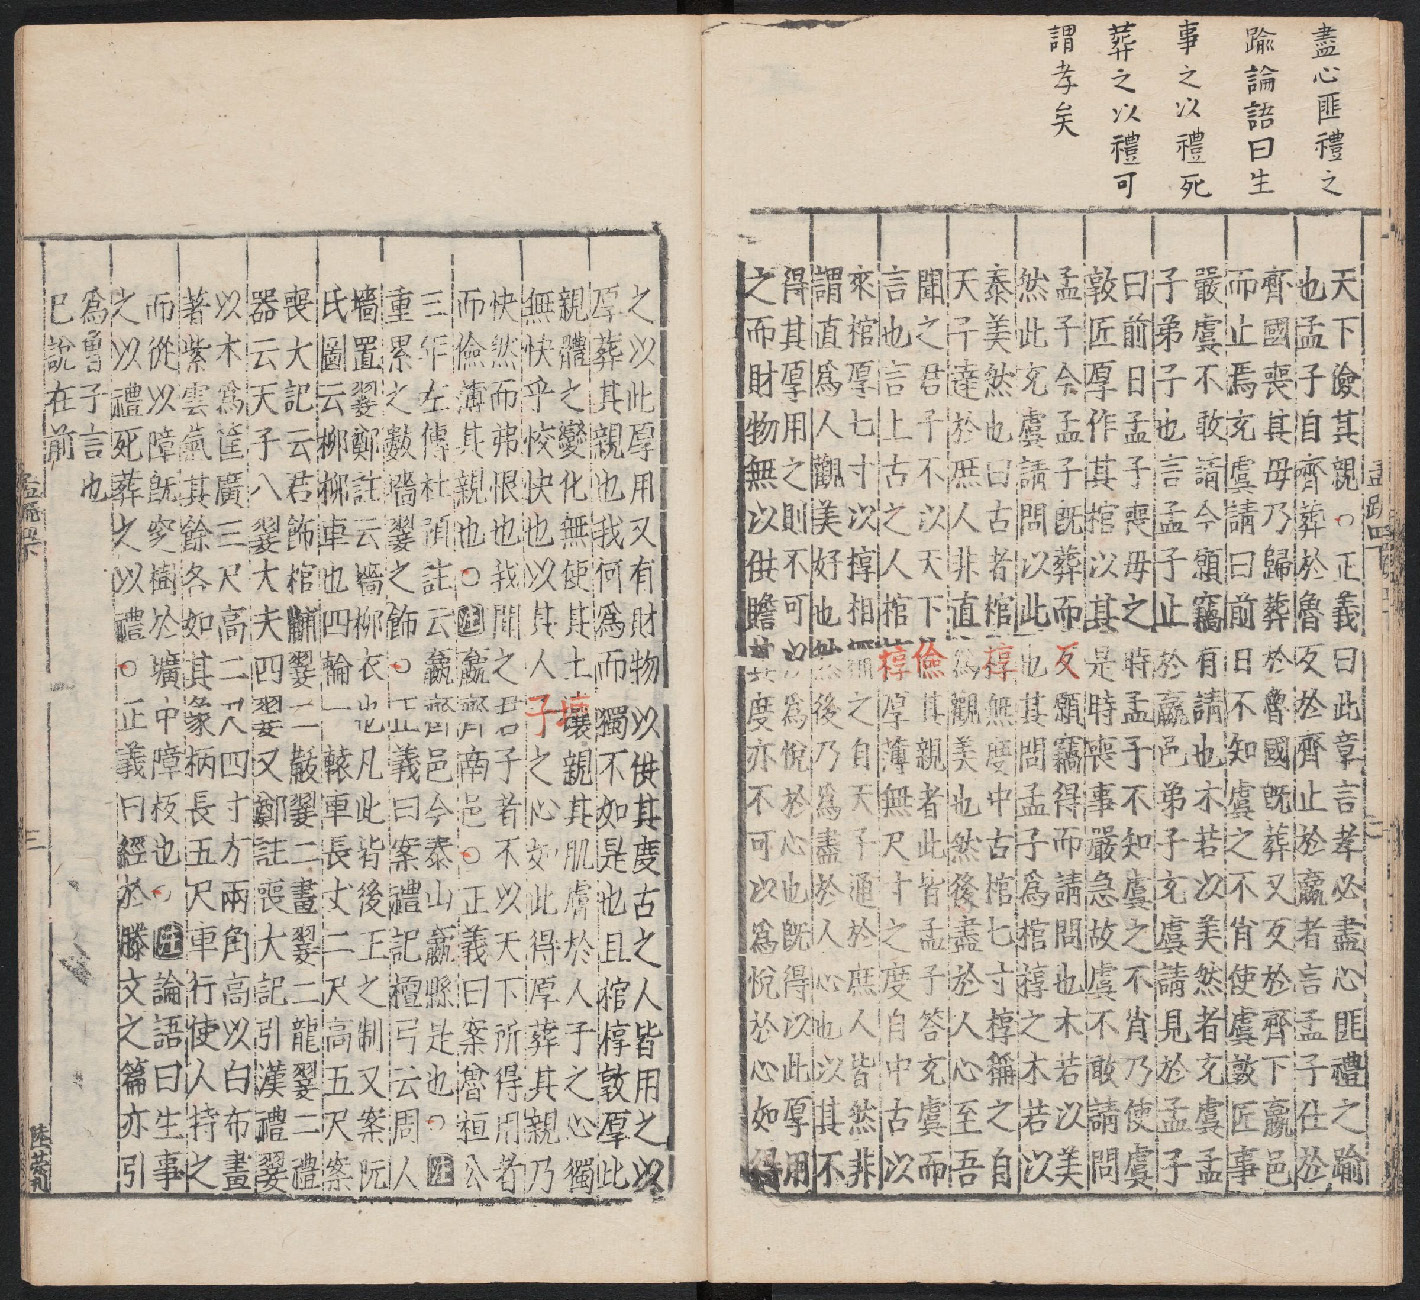 盡心匪禮之
踰論語曰生
事之以禮死
葬之以禮可
謂孝矣
天下儉其親○正義曰此章言孝必盡心匪禮之踰
也孟子自齊葬於魯反於齊止於嬴者言孟子仕於
齊國喪其母乃歸葬於魯國旣葬又反於齊下嬴邑
而止焉充虞請曰前日不知虞之不肖使虞敦匠事
嚴虞不敢請今願竊有請也木若以美然者充虞孟
子弟子也言孟子止於嬴邑弟子充虞請見於孟子
曰前日孟子喪母之時孟子不知虞之不肖乃使虞
敦匠厚作其棺以其是時喪事嚴急故虞不敢請問
孟子今孟子旣葬而反願竊得而請問也木若以美
然此充虞請問以此也其問孟子爲棺椁之木若以
泰美然也曰古者棺椁無度中古棺七寸椁稱之自
天子達於庶人非直爲觀美也然後盡於人心至吾
聞之君子不以天下儉其親者此皆孟子答充虞而
言也言上古之人棺椁厚薄無尺寸之度自中古以
來棺厚七寸以椁相稱之自天子通於庶人皆然非
謂直爲人觀美好也然後乃爲盡於人心也以其不
得其厚用之則不可以爲悅於心也旣得以此厚用
之而財物無以供贍其度亦不可以爲悅於心如得
之以此厚用又有財物以供其度古之人皆用之以
厚葬其親也我何爲而獨不如是也且棺椁敦厚此
親體之變化無使其土壤親其肌膚於人子之心獨
無快乎恔快也以其人子之心如此得厚葬其親乃
快然而弗恨也我聞之君子者不以天下所得用者
而儉薄其親也○注嬴齊南邑○正義曰案魯桓公
三年左傳杜預註云嬴齊邑今泰山嬴縣是也○注
重累之數墻翣之飾○正義曰案禮記檀弓云周人
墻置翣鄭註云墻柳衣也凡此皆後王之制又案阮
氏圖云柳柳車也四輪一轅車長丈二尺高五尺案
喪大記云君飾棺黼翣二黻翣二畫翣二龍翣二禮
器云天子八翣大夫四翣又鄭註喪大記引漢禮翣
以木爲筐廣三尺高二尺四寸方兩角高以白布畫
著紫雲氣其餘各如其象柄長五尺車行使人持之
而從以障旣窆樹於壙中障柩也○注論語曰生事
之以禮死葬之以禮○正義曰經於滕文之篇亦引
爲曾子言也
已說在前